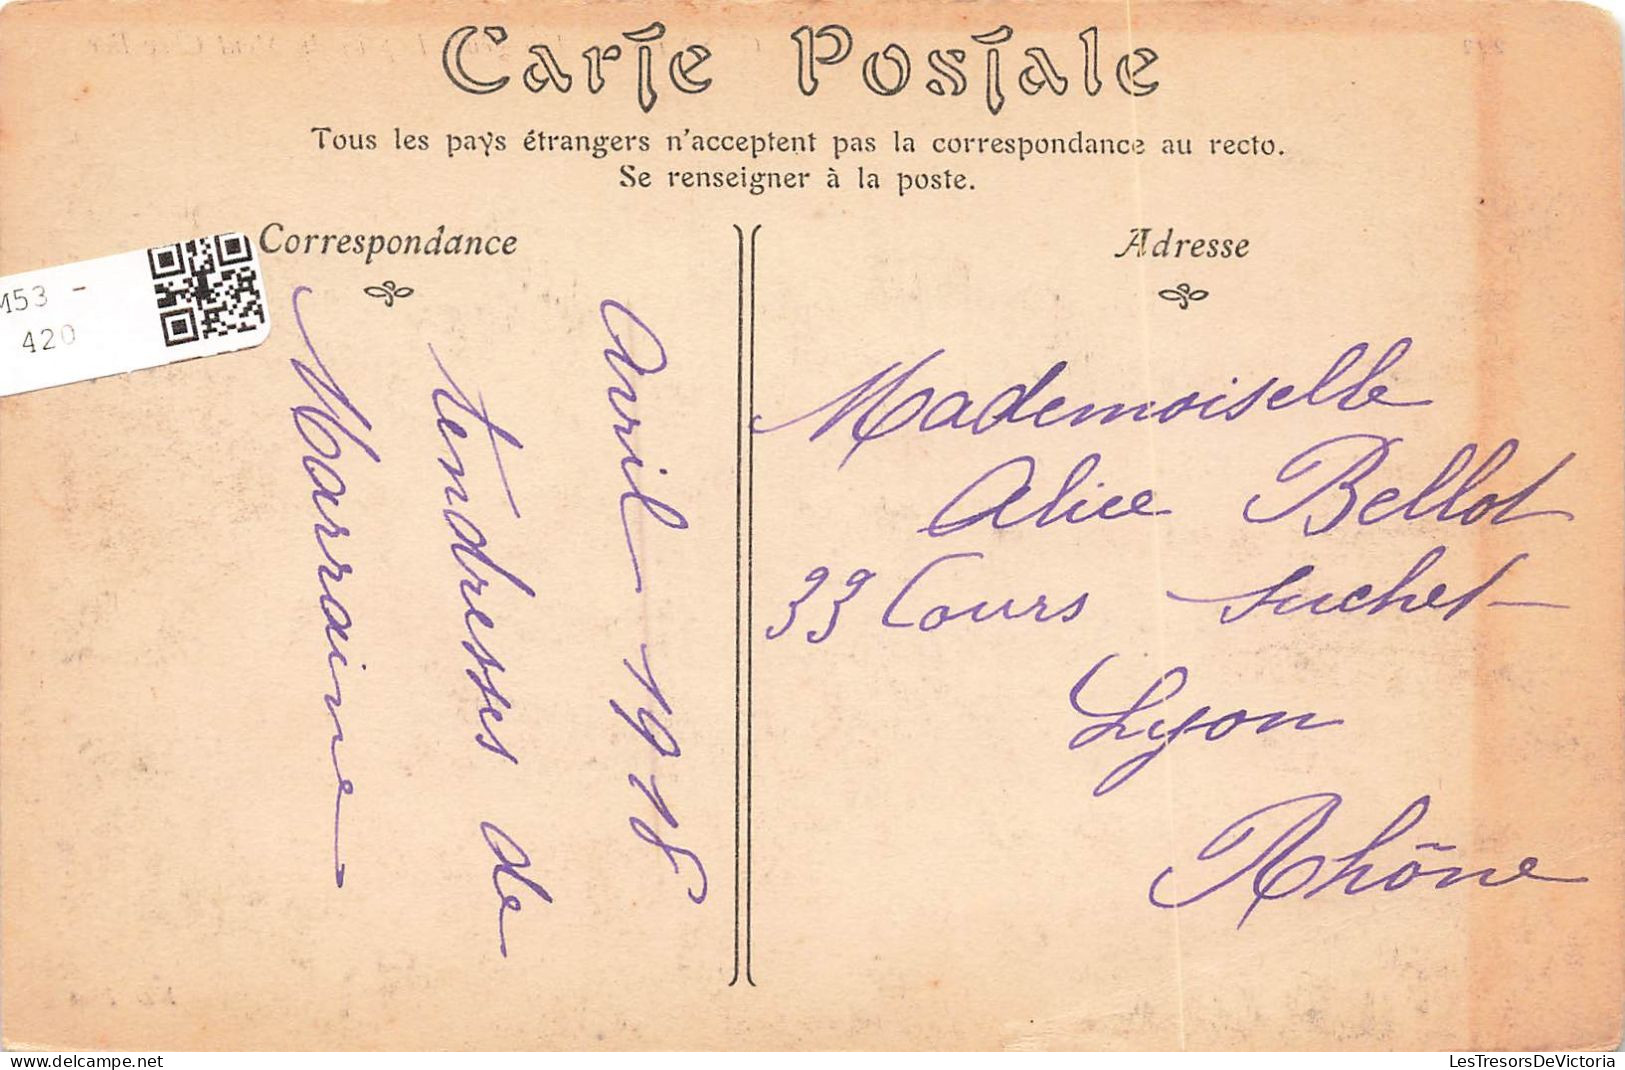 Carte Postale
Tous les pays étrangers n'acceptent pas la correspondance au recto.
Se renseigner à la poste.
Correspondance
Adresse
M53 -
420
Avril 1918
tendresses de
Marraine
Mademoiselle
Alice Bellot
33 Cours Suchet
Lyon
Rhône
LesTresorsDeVictoria
www.delcampe.net